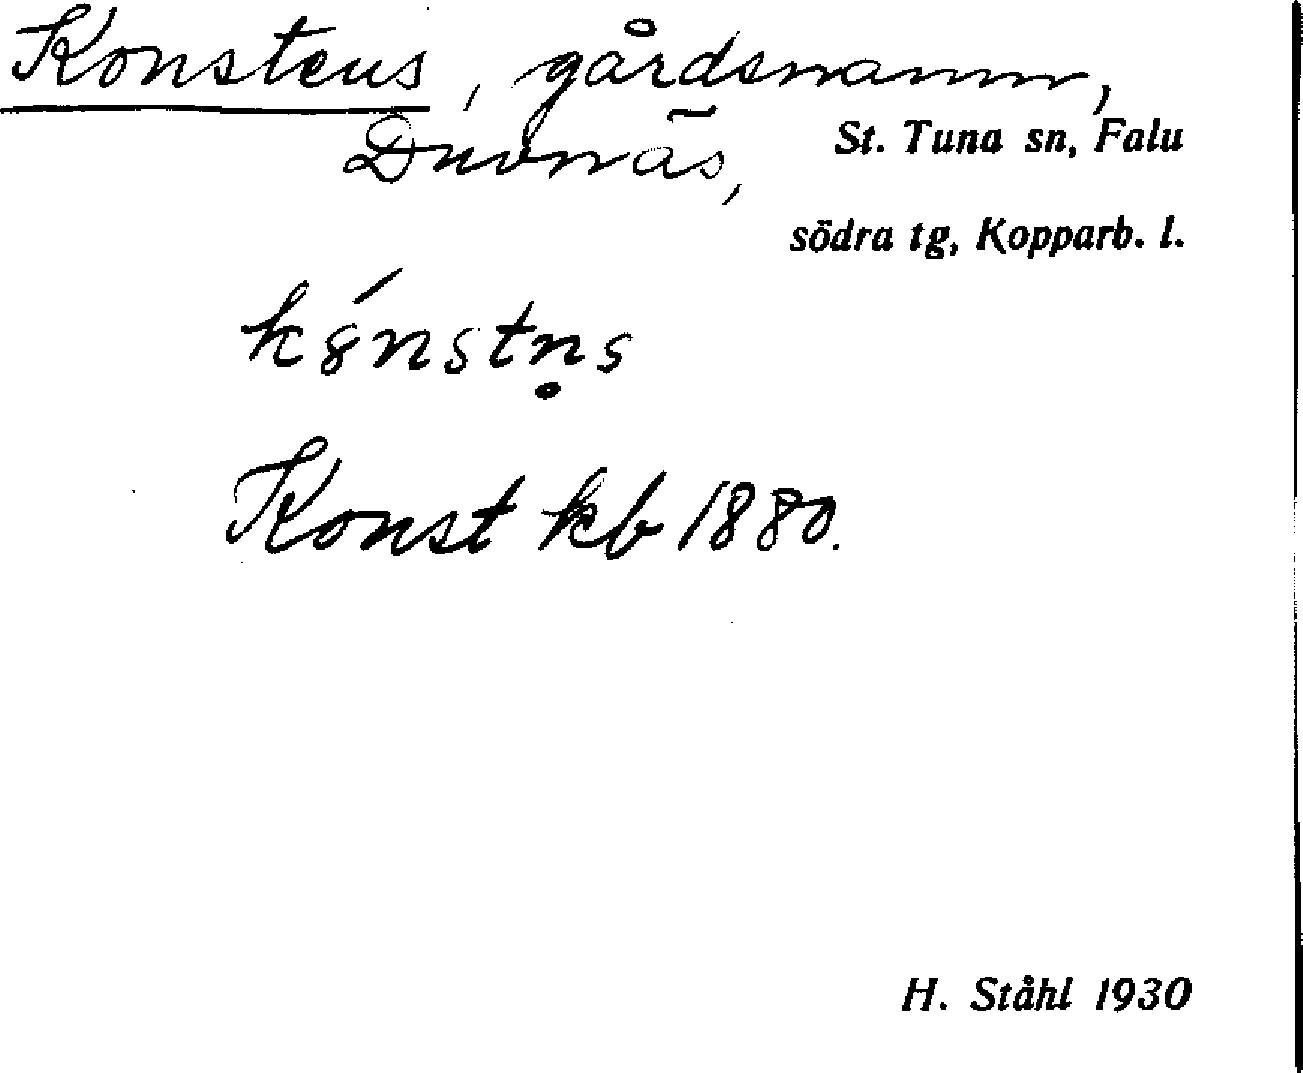 Konstens, gårdsnamn,
Duvnäs, St. Tuna sn, Falu
södra tg, Kopparb. l.
kȣ́nstn̥s
Konst kb 1880.
H. Ståhl 1930